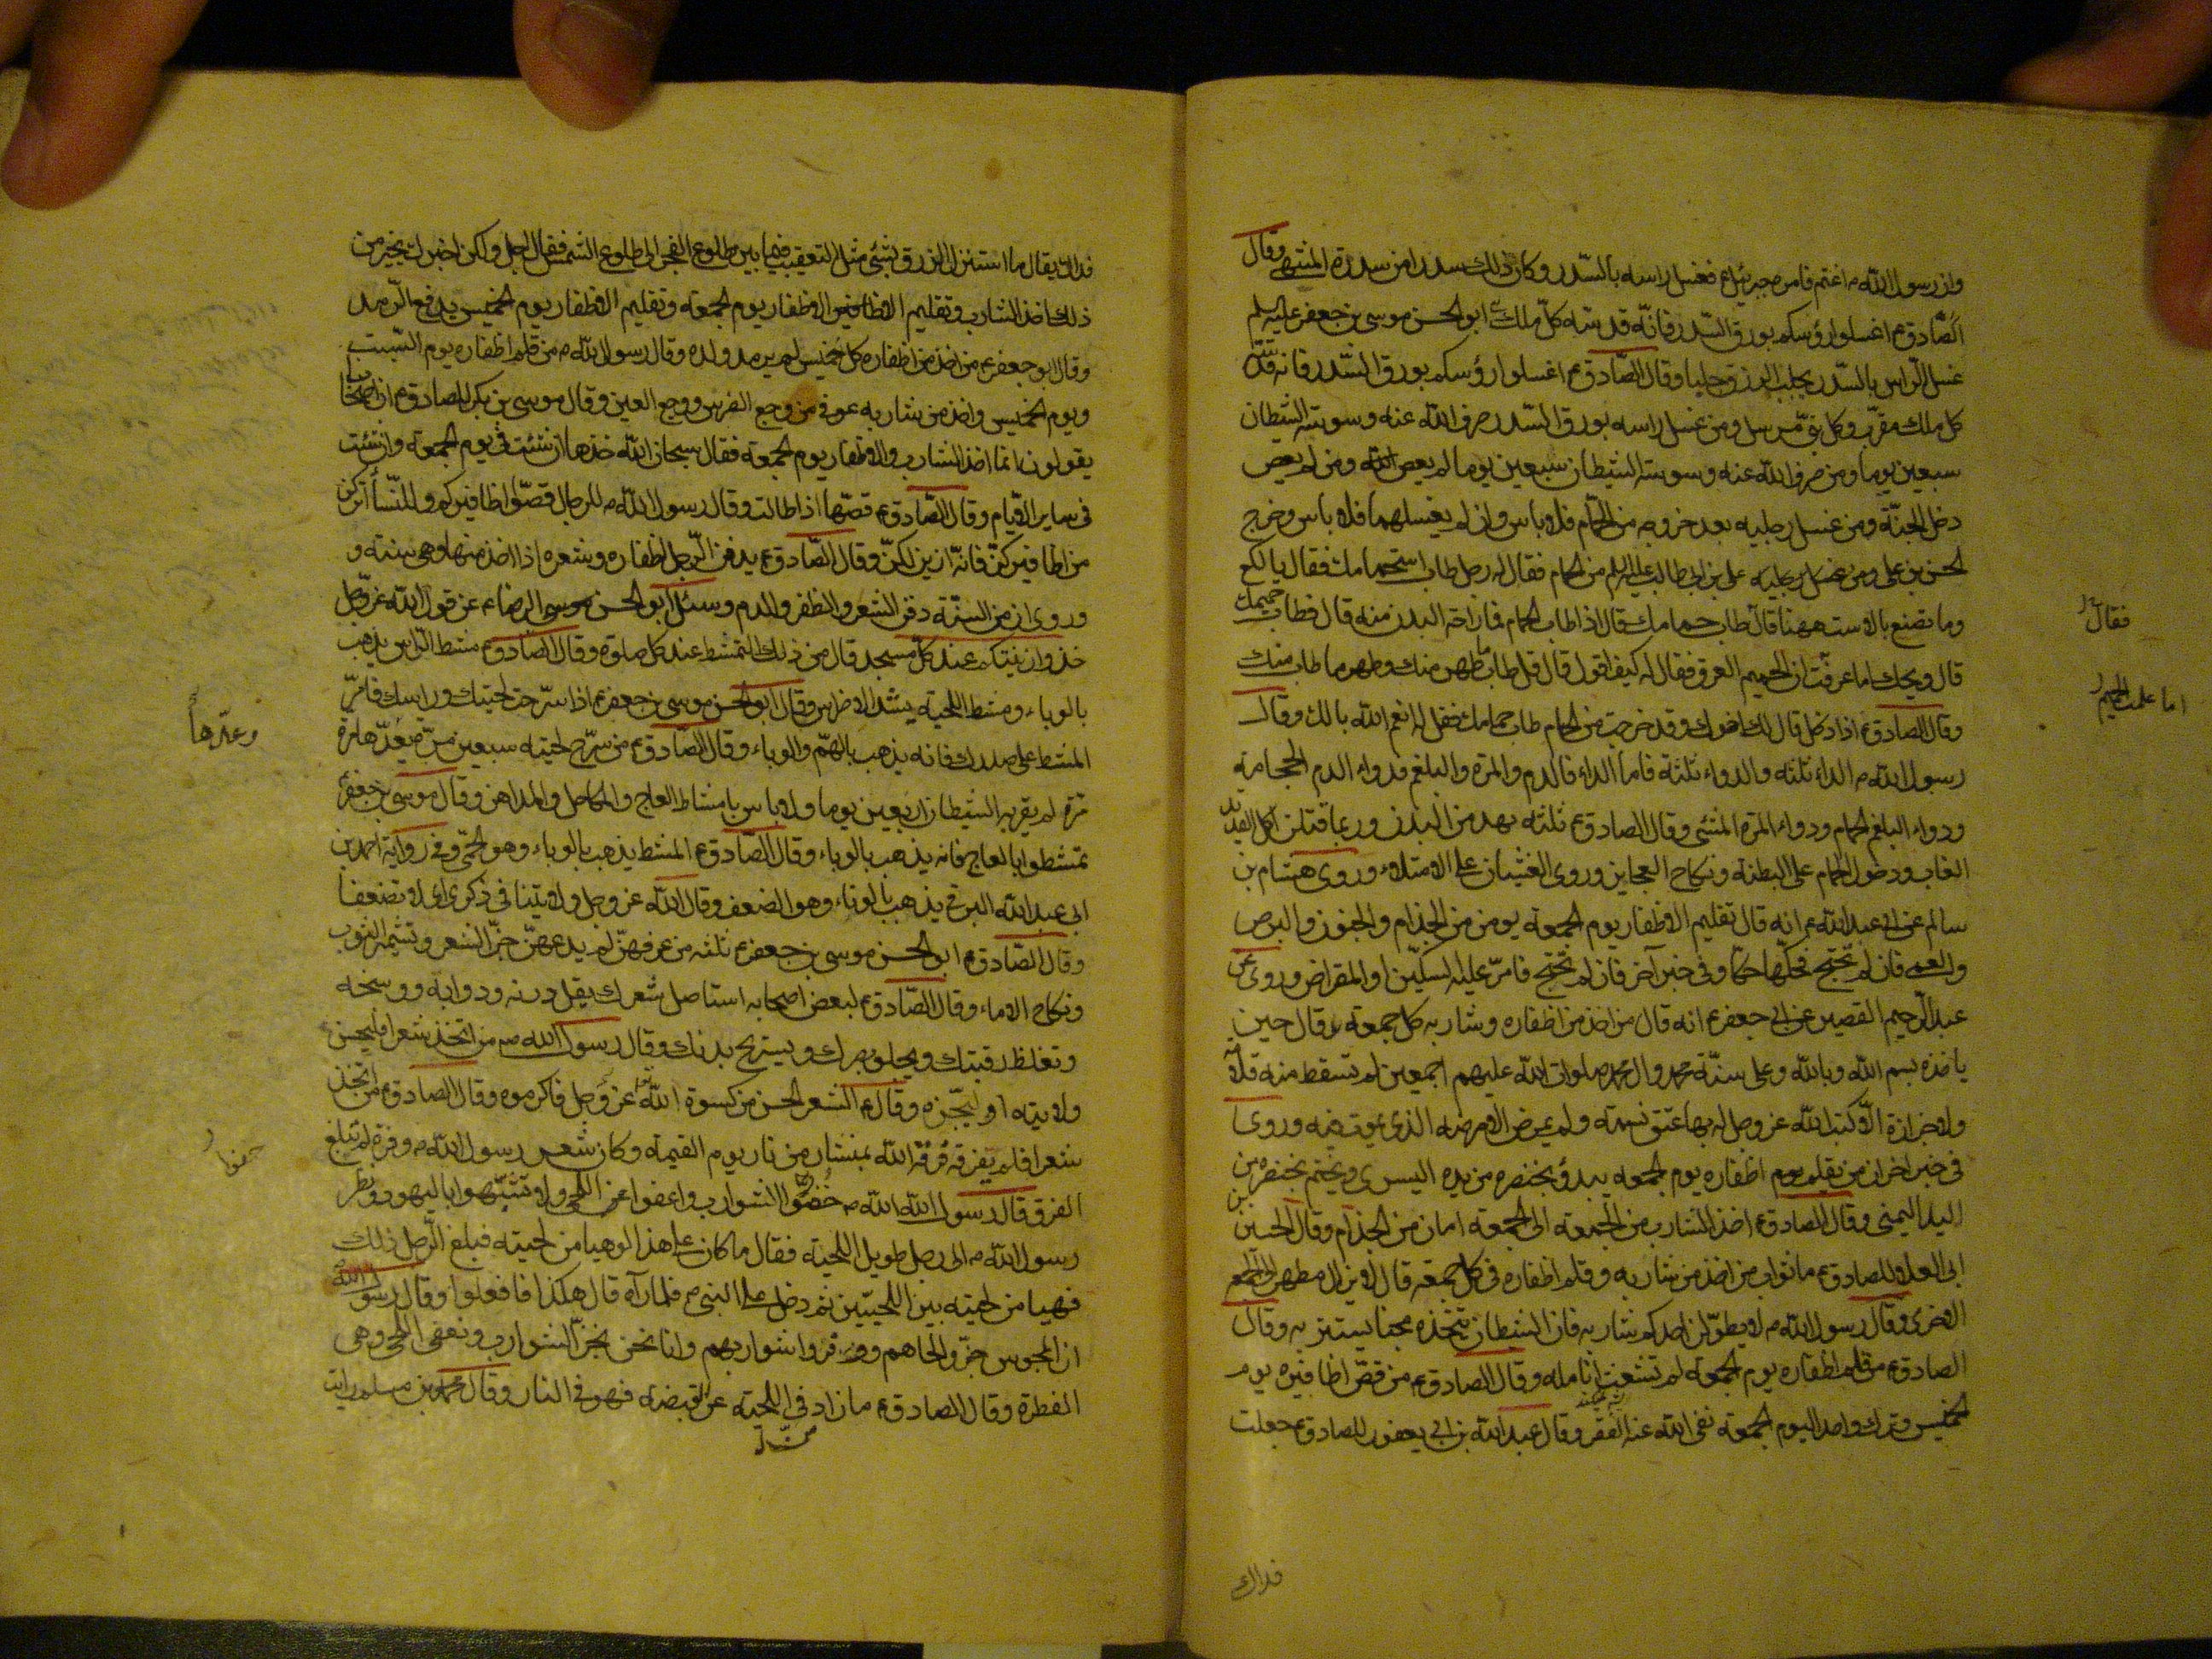 وان رسول الله ص اغتم فامره جبرئيل ع فغسل راسه بالسدر وكان ذلك سدرا من سدرة المنتهى وقال
الصادق ع اغسلوا رؤسكم بورق السدر فانه قدسه كل ملك ابو الحسن موسى بن جعفر عليه السلم
غسل الراس بالسدر يجلب الرزق جلبا وقال الصادق ع اغسلوا رؤسكم بورق السدر فانه قدسه
كل ملك مقرب وكل نبي مرسل ومن غسل راسه بورق السدر صرف الله عنه وسوسة الشيطان
سبعين يوما ومن صرف الله عنه وسوسة الشيطان سبعين يوما لم يعص الله ومن لم يعص
دخل الجنة ومن غسل رجليه بعد خروجه من الحمام فلا باس وان لم يغسلهما فلا باس وخرج
الحسن بن علي بن ابي طالب عليه السلم من الحمام فقال له رجل طاب استحمامك فقال يا لكع
وما تصنع بالاست ههنا قال طاب حمامك قال اذا طاب الحمام فما راحة البدن منه قال فطاب حميمك
قال ويحك اما عرفت ان الحميم العرق فقال له كيف اقول قال قل طاب ما طهر منك وطهر ما طاب منك
وقال الصادق ع اذا دخل قال لك اخوك وقد خرجت من الحمام طاب حمامك فقل له انعم الله بالك وقال
رسول الله ص الداء ثلثة والدواء ثلثة فاما الداء فالدم والمرة والبلغم فدواء الدم الحجامة
ودواء البلغم الحمام ودواء المرة المشي وقال الصادق ع ثلثة يهدمن البدن وربما قتلن اكل القديد
الغاب ودخول الحمام على البطنة ونكاح العجايز وروى الغشيان على الامتلاء وروى هشام بن
سالم عن ابي عبد الله ع انه قال تقليم الاظفار يوم الجمعة يومن من الجذام والجنون والبرص
والعمى فان لم تحتج فحكها حكا وفي خبر آخر فان لم تحتج فامر عليها السكين او المقراض وروى
عبد الرحيم القصير عن ابي جعفر ع انه قال من اخذ من اظفاره وشاربه كل جمعة وقال حين
ياخذه بسم الله وبالله وعلى سنة محمد وال محمد صلوات الله عليهم اجمعين لم تسقط منه قلامة
ولا جزازة الا كتب الله عز وجل له بها عتق نسمة ولم يمرض الا مرضه الذي يموت فيه وروى
في خبر اخر ان من يقلم اظفاره يوم الجمعة يبدؤ بخنصره من يده اليسرى ويختم بخنصره من
اليد اليمنى وقال الصادق ع اخذ الشارب من الجمعة الى الجمعة امان من الجذام وقال الحسين بن
ابي العلا للصادق ع ما ثواب من اخذ من شاربه وقلم اظفاره في كل جمعة قال لا يزال مطهرا الى الجمعة
الاخرى وقال رسول الله ص لا يطولن احدكم شاربه فان الشيطان يتخذه مجنا يستتر به وقال
الصادق ع من قلم اظفاره يوم الجمعة لم تشعث انامله وقال الصادق ع من قص اظافيره يوم
الخميس وترك واحدا ليوم الجمعة نفى الله عنه الفقر وقال عبد الله بن ابي يعفور للصادق ع جعلت
فداك
فقال
اما علمت ان الحميم
فداك يقال ما استنزل الرزق بشئ مثل التعقيب فيما بين طلوع الفجر الى طلوع الشمس فقال اجل ولكن اخبرك بخير من
ذلك اخذ الشارب وتقليم الاظفار يوم الجمعة وتقليم الاظفار يوم الخميس يدفع الرمد
وقال ابو جعفر ع من اخذ من اظفاره كل خميس لم يرمد ولده وقال رسول الله ص من قلم اظفاره يوم السبت
ويوم الخميس واخذ من شاربه عوفي من وجع الضرس ووجع العين وقال موسى بن بكر للصادق ع ان اصحابنا
يقولون انما اخذ الشارب والاظفار يوم الجمعة فقال سبحان الله خذها ان شئت في يوم الجمعة وان شئت
في ساير الايام وقال الصادق ع قصها اذا طالت وقال رسول الله ص للرجال قصوا اظافيركم وللنساء اتركن
من اظافيركن فانه ازين لكن وقال الصادق ع يدفن الرجل اظفاره وشعره اذا اخذ منها وهي سنة و
وروى ان من السنة دفن الشعر والظفر والدم وسئل ابو الحسن موسى الرضا ع عن قول الله عز وجل
خذوا زينتكم عند كل مسجد قال من ذلك التمشط عند كل صلوة وقال الصادق ع مشط الراس يذهب
بالوباء ومشط اللحية يشد الاضراس وقال ابو الحسن موسى بن جعفر ع اذا سرحت لحيتك وراسك فامر
المشط على صدرك فانه يذهب بالهم والوباء وقال الصادق ع من سرح لحيته سبعين مرة يعدها مرة
مرة لم يقربه الشيطان اربعين يوما ولا باس بامشاط العاج والمكاحل والمداهن وقال موسى بن جعفر ع
تمشطوا بالعاج فانه يذهب بالوباء وقال الصادق ع المشط يذهب بالوباء وهو الحمى وفي رواية احمد بن
ابي عبد الله البرقي يذهب بالوناء وهو الضعف وقال الله عز وجل ولا تنيا في ذكرى اى لا تضعفا
وقال الصادق ع ابو الحسن موسى بن جعفر ع ثلثة من عرفهن لم يدعهن جز الشعر وتشمير الثوب
ونكاح الاماء وقال الصادق ع لبعض اصحابه استاصل شعرك يقل درنه ودوابه ووسخه
وتغلظ رقبتك ويجلو بصرك ويستريح بدنك وقال رسول الله ص من اتخذ شعرا فليحسن
ولايته او ليجزه وقال ع الشعر الحسن من كسوة الله عز وجل فاكرموه وقال الصادق ع من اتخذ
شعرا فلم يفرقه فرقه الله بمنشار من نار يوم القيمة وكان شعر رسول الله ص وفرة لم تبلغ
الفرق قال رسول الله ص حفوا الشوارب واعفوا عن اللحى ولا تشبهوا باليهود ونظر
رسول الله ص الى رجل طويل اللحية فقال ما كان على هذا لو هيا من لحيته فبلغ الرجل ذلك
فهيا من لحيته بين اللحيتين ثم دخل على النبي ص فلما رآه قال هكذا فافعلوا وقال رسول الله
ان المجوس جزوا لحاهم ووفروا شواربهم وانا نحن نجز الشوارب ونعفي اللحى وهي
الفطرة وقال الصادق ع ما زاد في اللحية عن القبضة فهو في النار وقال محمد بن مسلم رايت
وعدها